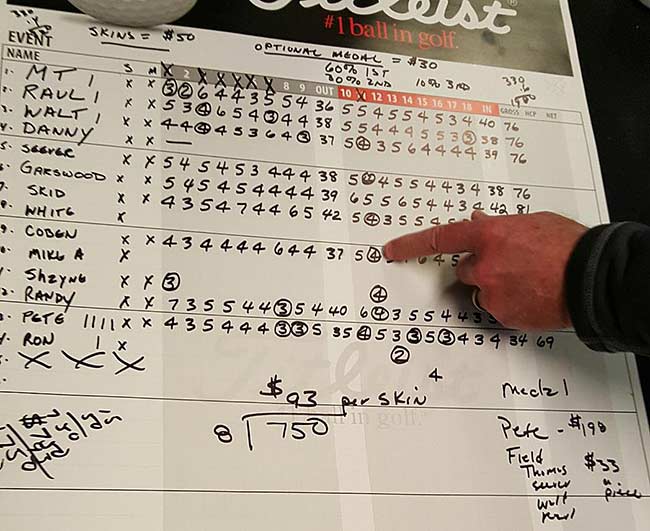 Titleist®
#1 ball in golf.
SKINS = $50
OPTIONAL MEDAL = $30
60% 1ST
30% 2ND 10% 3RD
EVENT
NAME S M 2 8 9 OUT 10 12 13 14 15 16 17 18 IN GROSS HCP NET
MT I X X 3 2 6 4 4 3 5 5 4 36 5 5 4 5 5 4 5 3 4 40 76
RAUL I X X 5 3 4 6 5 4 3 4 4 38 5 5 4 4 4 5 5 3 3 38 76
WALT I X X 4 4 4 4 5 3 6 4 3 37 5 4 3 5 6 4 4 4 4 39 76
DANNY X X
SEEVER X X 5 4 5 4 5 3 4 4 4 38 5 4 5 5 4 4 3 4 38 76
GARSWOOD X X 5 4 5 4 5 4 4 4 4 39 6 5 5 6 5 4 4 3 4 42 81
SKID X X 4 3 5 4 7 4 4 6 5 42 5 4 3 5 5 4
WHITE X
COBEN X X 4 3 4 4 4 4 6 4 4 37 5 4
MIKE A X
SHZYNE X X 3
RANDY X X 7 3 5 5 4 4 3 5 4 40 6 4 3 5 5 4 4 3
PETE IIII X X 4 3 5 4 4 4 3 3 5 35 4 5 3 3 5 3 4 3 4 34 69
RON I X
4
2
4
$93 per SKIN
8 750
Medal
Pete - $198
Field $33
Thomas a piece
seever
walt
raul